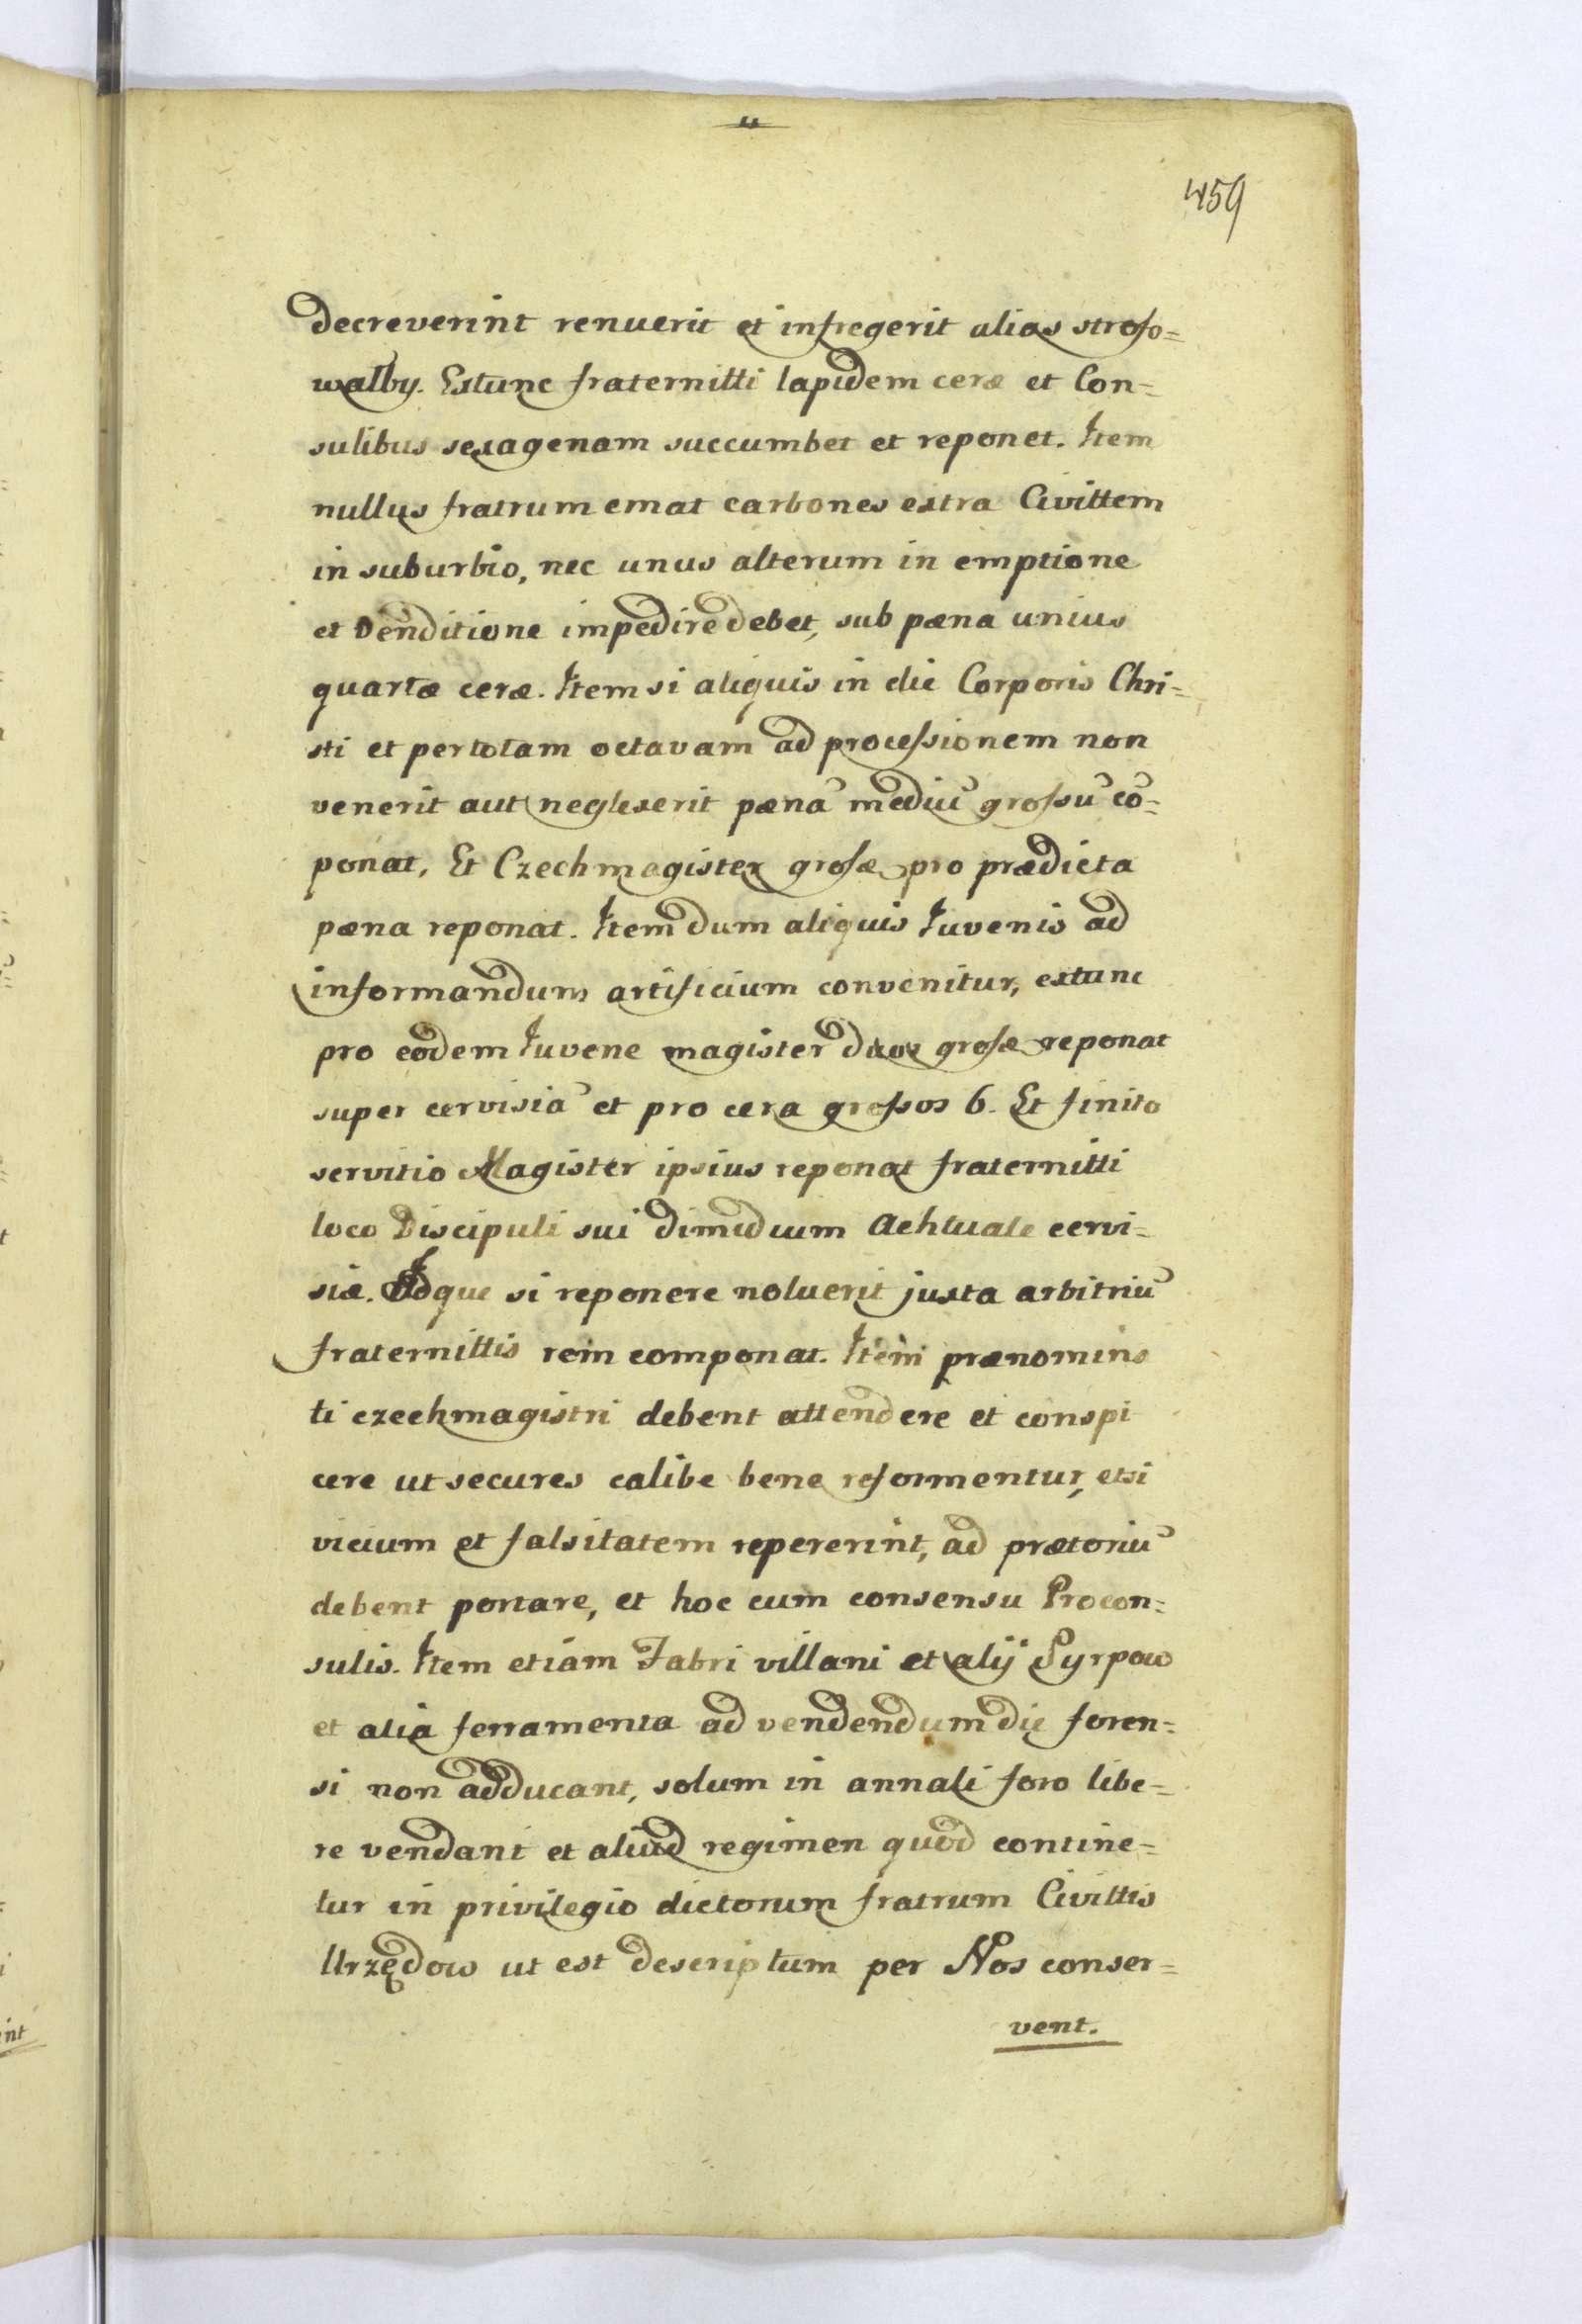 459
decreverint renuerit et infregerit alias strofo=
walby. Extunc fraternitti lapidem ceræ et Con=
sulibus sexagenam succumbet et reponet. Item
nullus fratrum emat carbones extra Civittem
in suburbio, nec unus alterum in emptione
et venditione impedire debet, sub pæna unius
quartæ ceræ. Item si aliquis in die Corporis Chri=
sti et per totam octavam ad processionem non
venerit aut neglexerit pænā mediū grossū cō=
ponat, Et Czechmagister grosæ pro prædicta
pæna reponat. Item dum aliquis Juvenis ad
informandum artificium convenitur, extunc
pro eodem Juvene magister duos grosæ reponat
super cervisiā et pro cera grossos 6. Et finito
servitio Magister ipsius reponat fraternitti
loco Discipuli sui dimidium Achtuale cervi=
siæ. Idque si reponere noluerit juxta arbitriū
fraternittis rem componat. Item prænomina
ti czechmagistri debent attendere et conspi
cere ut secures calibe bene reformentur, etsi
vicium et falsitatem repererint, ad prætoriū
debent portare, et hoc cum consensu Procon=
sulis. Item etiam Fabri villani et alij Syrpow
et alia ferramenta ad vendendum die foren=
si non adducant, solum in annali foro libe=
re vendant et aliud regimen quod contine=
tur in privilegio dictorum fratrum Civittis
Urzędow ut est descriptum per Nos conser=
vent.